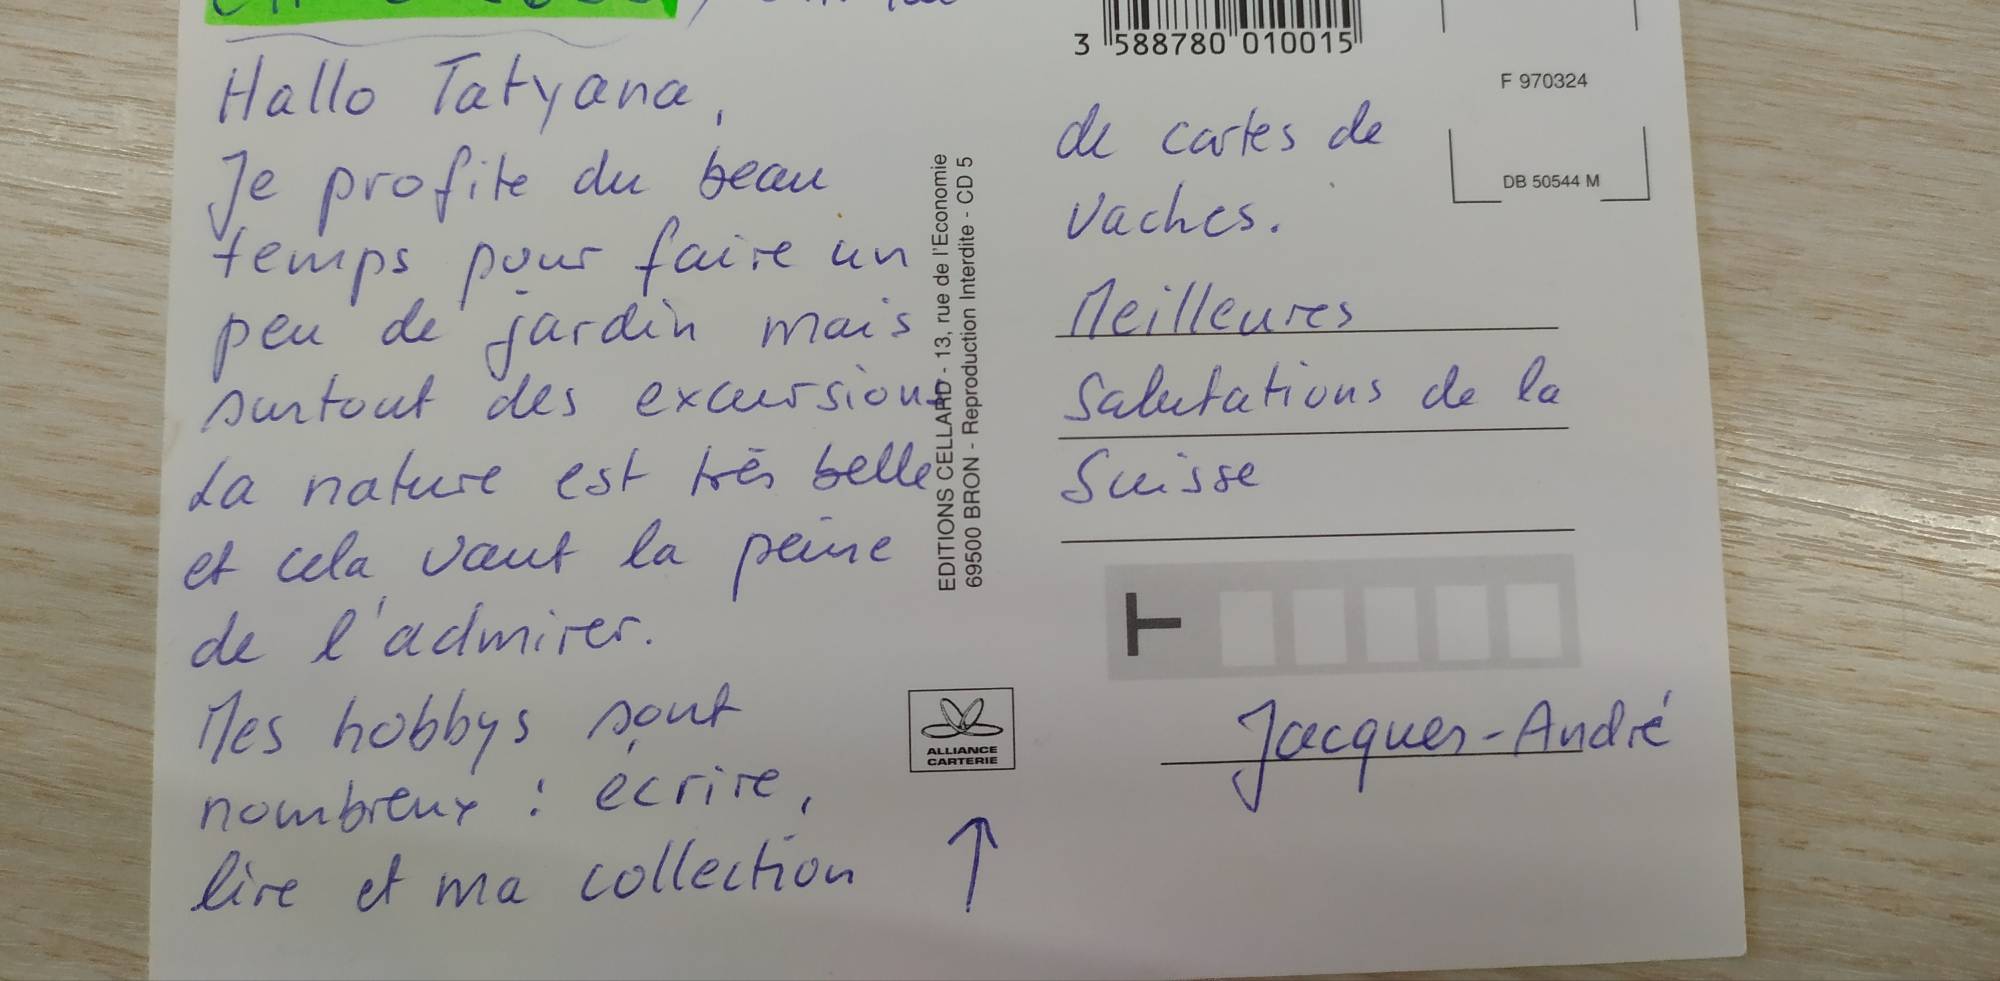 Hallo Tatyana,
Je profite du beau
temps pour faire un
peu de jardin mais
surtout des excursions
La nature est très belle
et cela vaut la peine
de l'admirer.
Mes hobbys sont
nombreux : écrire,
lire et ma collection
EDITIONS CELLARD - 13, rue de l'Economie
69500 BRON - Reproduction Interdite - CD 5
ALLIANCE
CARTERIE
3 588780 010015
F 970324
DB 50544 M
de cartes de
vaches.
Meilleures
Salutations de la
Suisse
Jacques-André